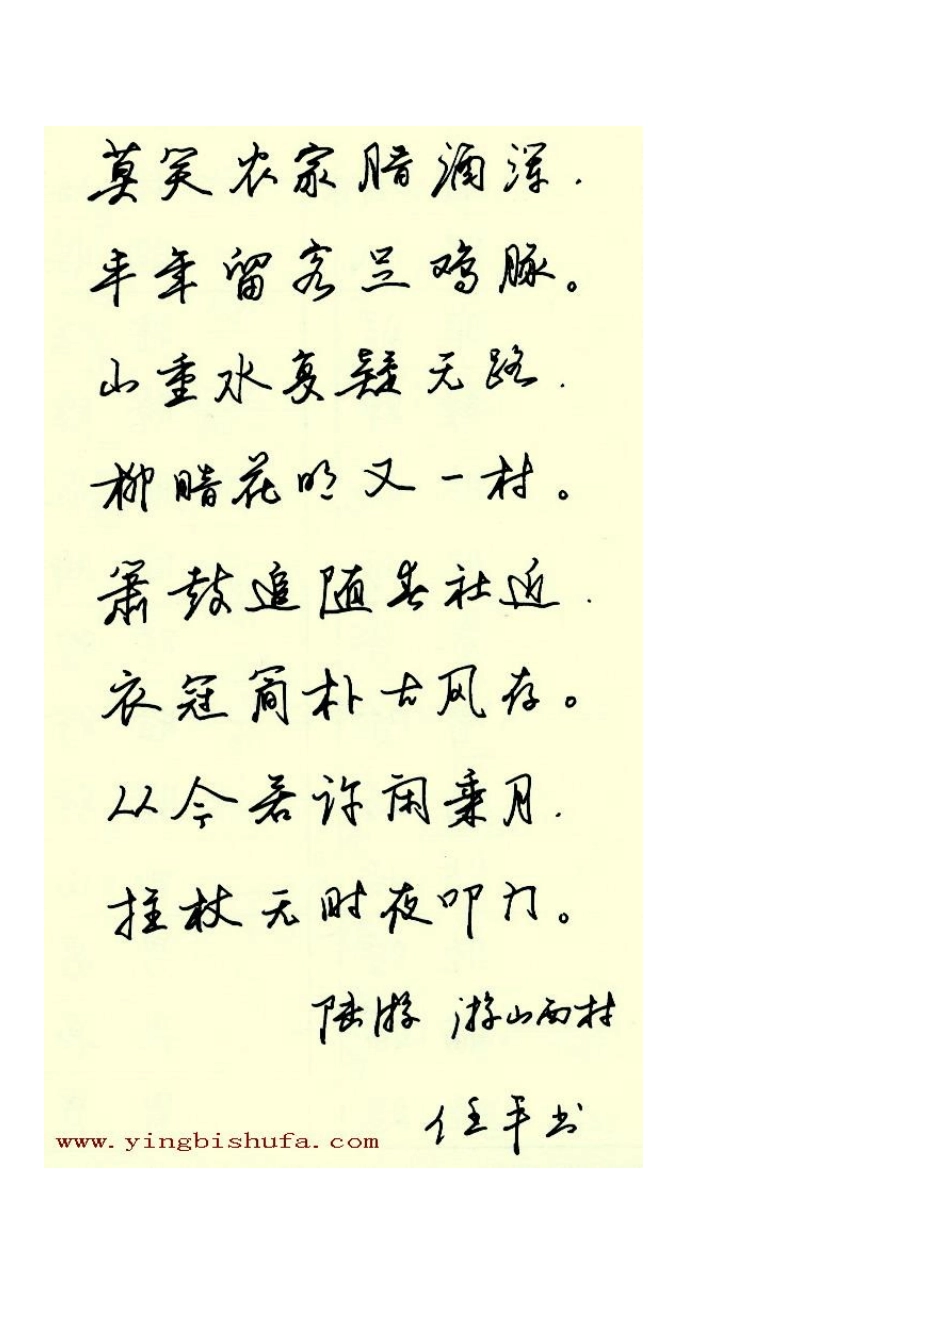 莫笑农家腊酒浑.
丰年留客足鸡豚。
山重水复疑无路.
柳暗花明又一村。
箫鼓追随春社近.
衣冠简朴古风存。
从今若许闲乘月.
拄杖无时夜叩门。
陆游 游山西村
任平书
www.yingbishufa.com